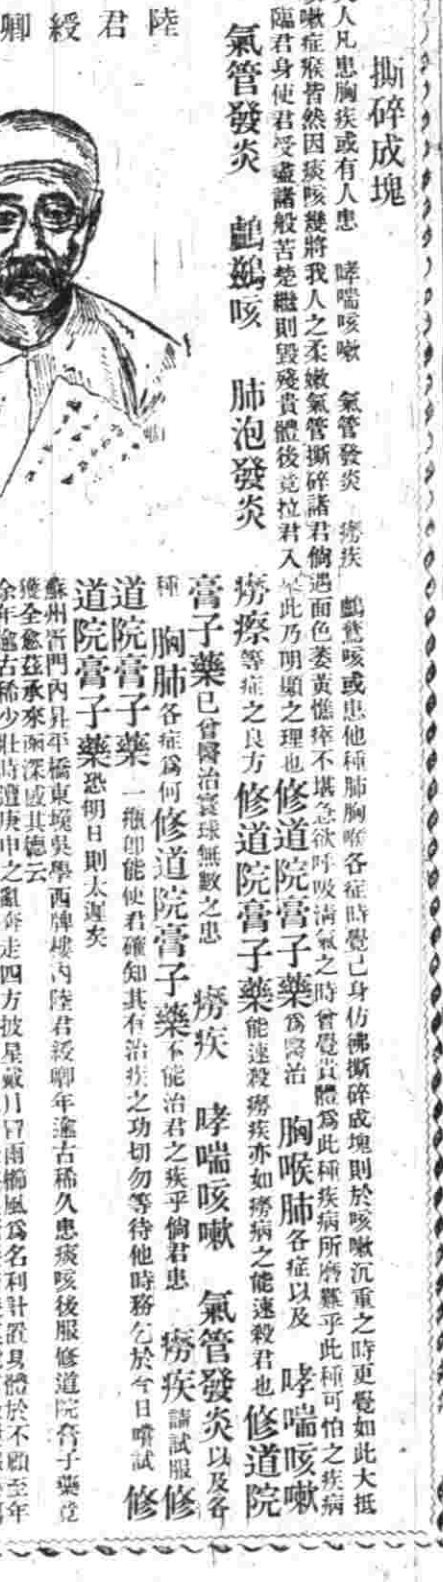 撕碎成塊
人凡患胸疾或有人患 哮喘咳嗽 氣管發炎 癆疾 鸕鶿咳或患他種肺胸喉各症時覺己身仿彿撕碎成塊則於咳嗽沉重之時更覺如此大抵
嗽症瘊皆然因痰咳幾將我人之柔嫩氣管撕碎諸君倘遇面色萎黃憔瘁不堪急欲呼吸清氣之時曾覺貴體爲此種疾病所磨難乎此種可怕之疾病
臨君身使君受盡諸般苦楚繼則毀殘貴體後竟拉君入 此乃明顯之理也修道院膏子藥爲醫治 胸喉肺各症以及 哮喘咳嗽
氣管發炎 鸕鶿咳 肺泡發炎 癆瘵等症之良方修道院膏子藥能速殺癆疾亦如癆病之能速殺君也修道院
膏子藥已曾醫治寰球無數之患 癆疾 哮喘咳嗽 氣管發炎以及各
種 胸肺各症爲何修道院膏子藥不能治君之疾乎倘君患 癆疾請試服修
道院膏子藥一瓶卽能使君確知其有治疾之功切勿等待他時務乞於今日嚐試 修
道院膏子藥恐明日則太遲矣
陸君綬卿
蘇州胥門內昇平橋東堍吳學西牌樓內陸君綬卿年逾古稀久患痰咳後服修道院膏子藥竟
獲全愈茲承來函深感其德云
余年逾古稀少壯時遭庚申之亂奔走四方披星戴月冒雨櫛風爲名利計置身體於不顧至年